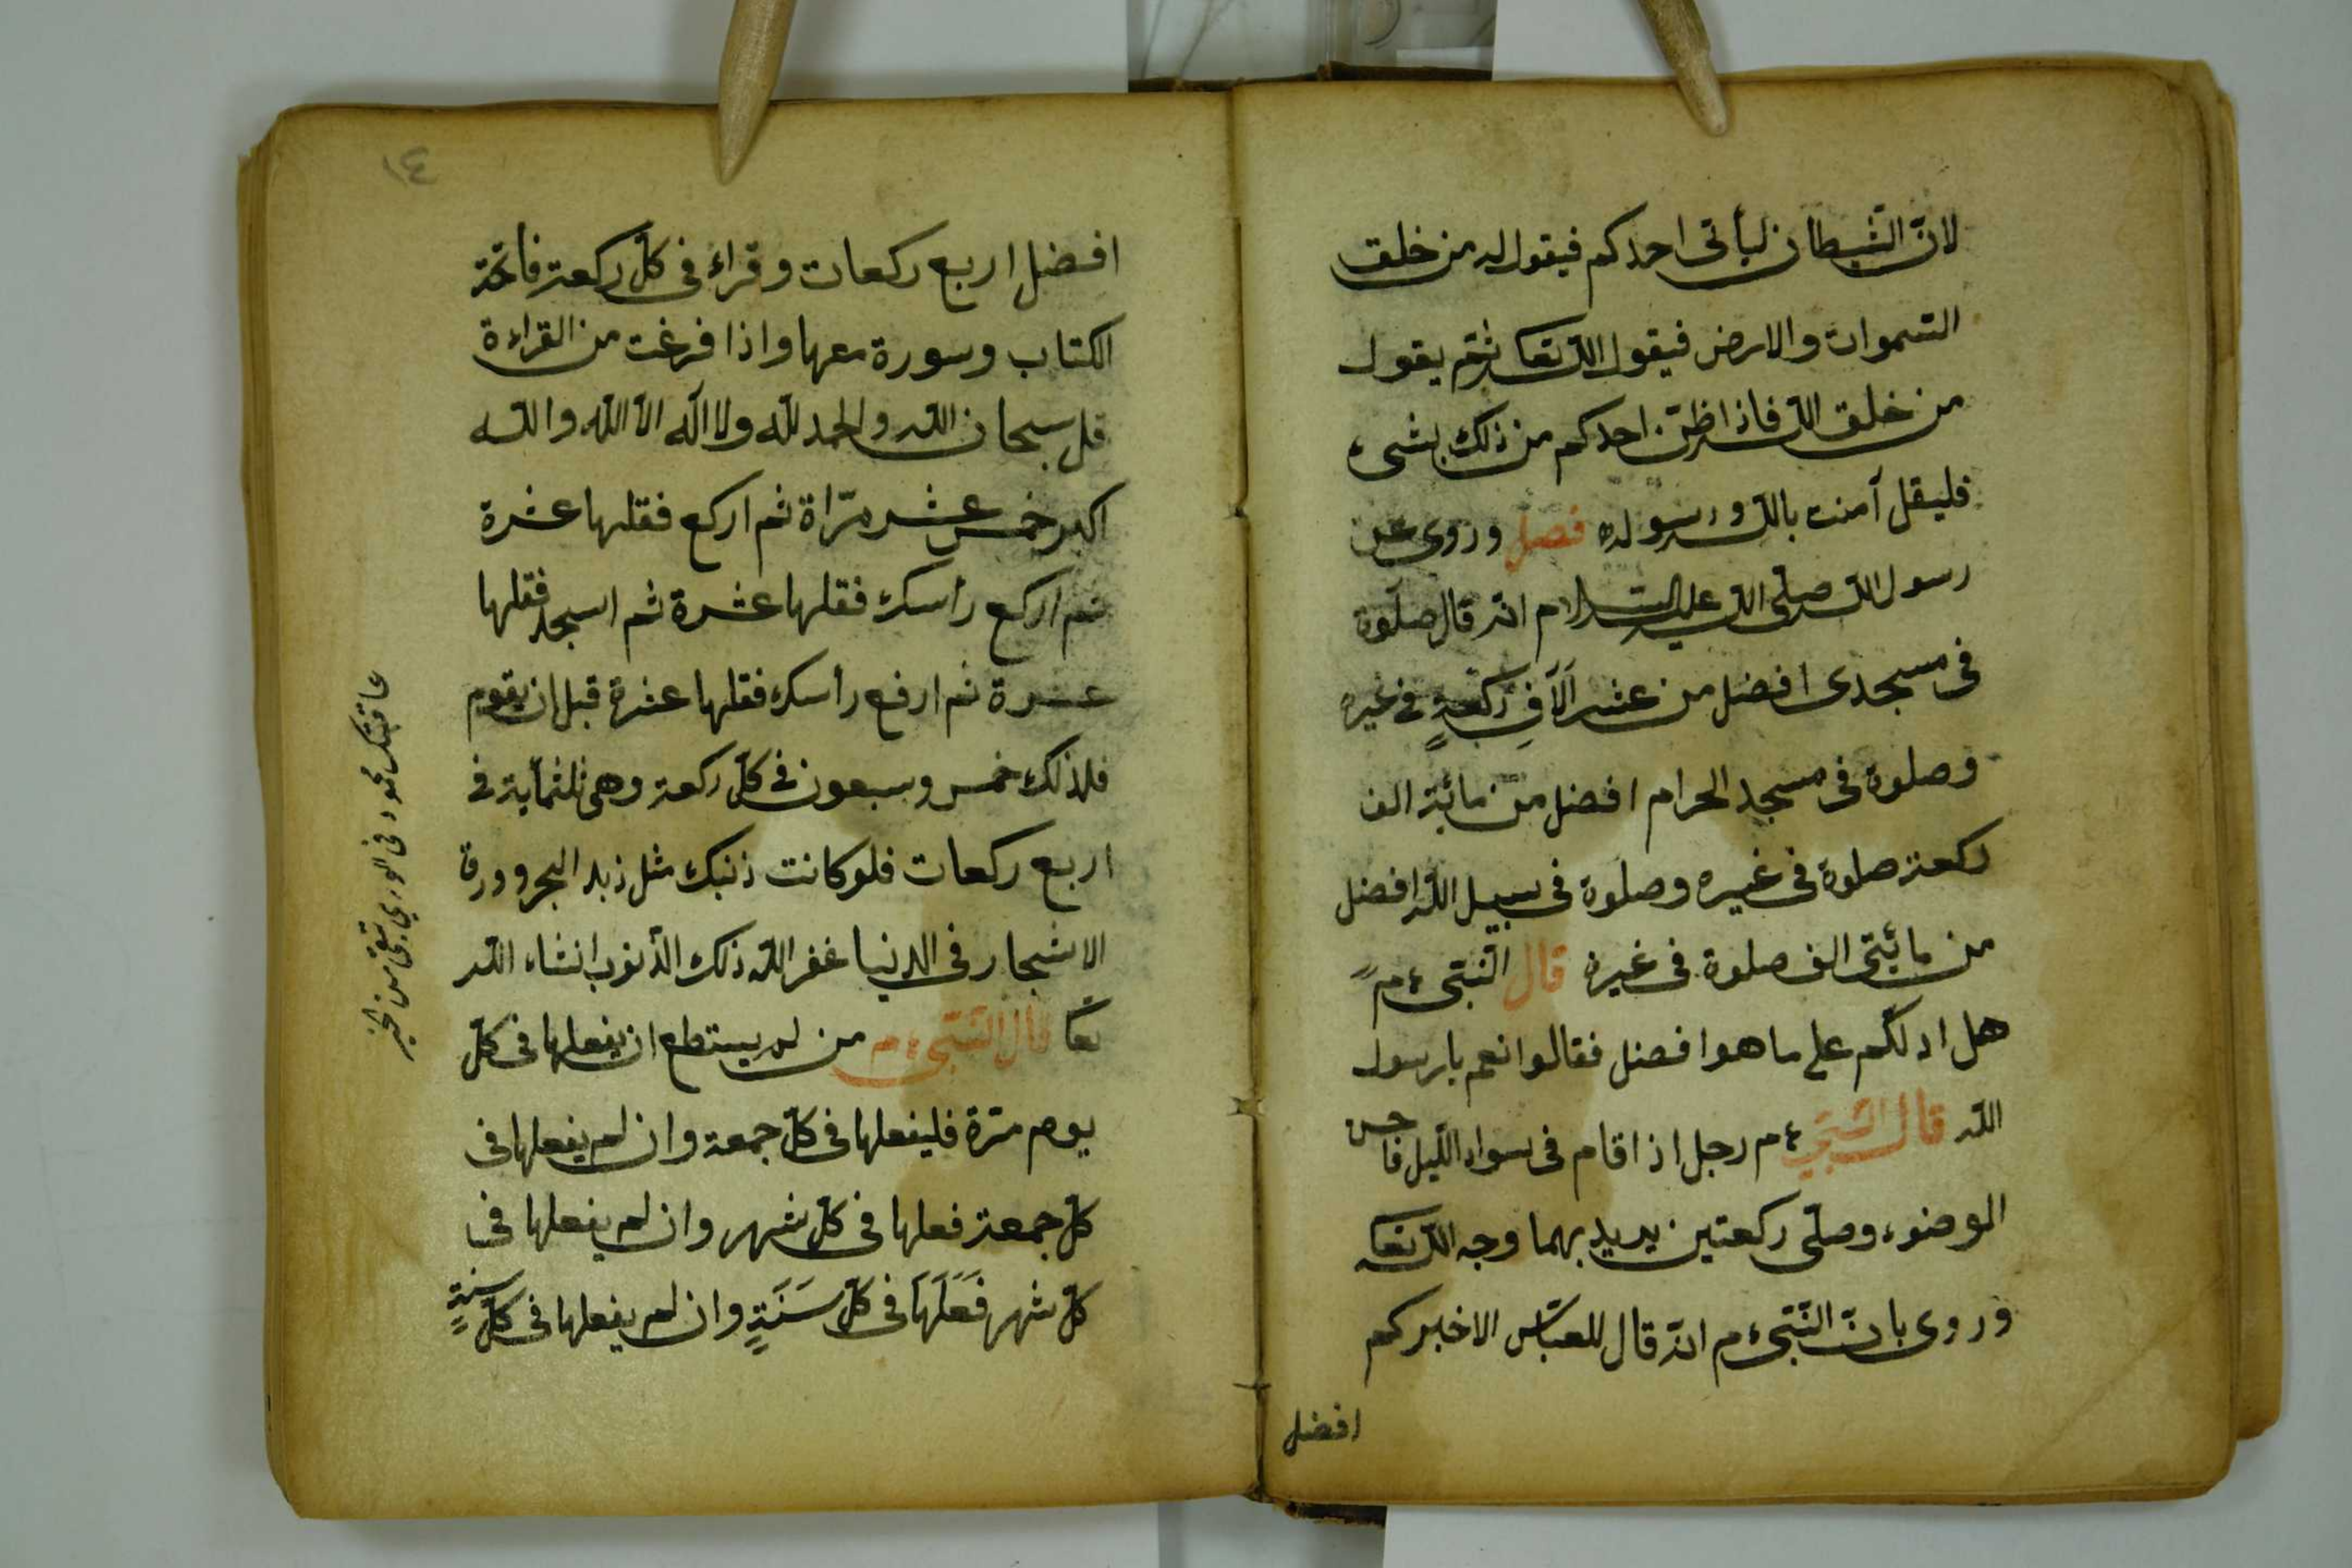 لانّ الشّيطان ليأتى احدكم فيقول له من خلق
السّموات والارض فيقول الله تعا ثمّ يقول
من خلق الله فاذا ظنّ احدكم من ذلك بشىء
فليقل آمنت بالله ورسوله فصل وروى عن
رسول الله صلّى الله عليه السّلام انّه قال صلوة
فى مسجدى افضل من عشر آلافِ ركعةٍ فى غيره
وصلوة فى مسجد الحرام افضل من مائة الف
ركعة صلوة فى غيره وصلوة فى سبيل الله افضل
من مائتى الف صلوة فى غيره قال النّبى ءم
هل ادلّكم على ما هو افضل فقالوا نعم يا رسول
الله قال النّبي ءم رجل اذا قام فى سواد اللّيل فاحسن
الوضوء وصلّى ركعتين يريد بهما وجه الله تعا
وروى بانّ النّبى ءم انّه قال للعبّاس الا اخبركم
افضل
١٤
افضل اربع ركعات وقراء فى كلّ ركعة فاتحة
الكتاب وسورة معها واذا فرغت من القراءة
قل سبحان الله والحمد لله ولا اله الّا الله والله
اكبر خمس عشر مرّاة ثم اركع فقلها عشرة
ثم اركع رأسك فقلها عشرة ثم اسجد فقلها
عشرة ثم ارفع رأسك فقلها عشرة قبل ان يقوم
فلذلك خمس وسبعون فى كلّ ركعة وهى ثلثماية فى
اربع ركعات فلو كانت ذنبك مثل زبد البحر وورق
الاشجار فى الدنيا غفر الله ذلك الذّنوب انشاء الله
تعا قال النّبى ءم من لم يستطع ان يفعلها فى كلّ
يوم مرّة فليفعلها فى كلّ جمعة وان لم يفعلها فى
كلّ جمعة فعلها فى كلّ شهر وان لم يفعلها فى
كلّ شهر فَعَلَهَا فى كلّ سَنَةٍ وان لم يفعلها فى كلّ سنةٍ